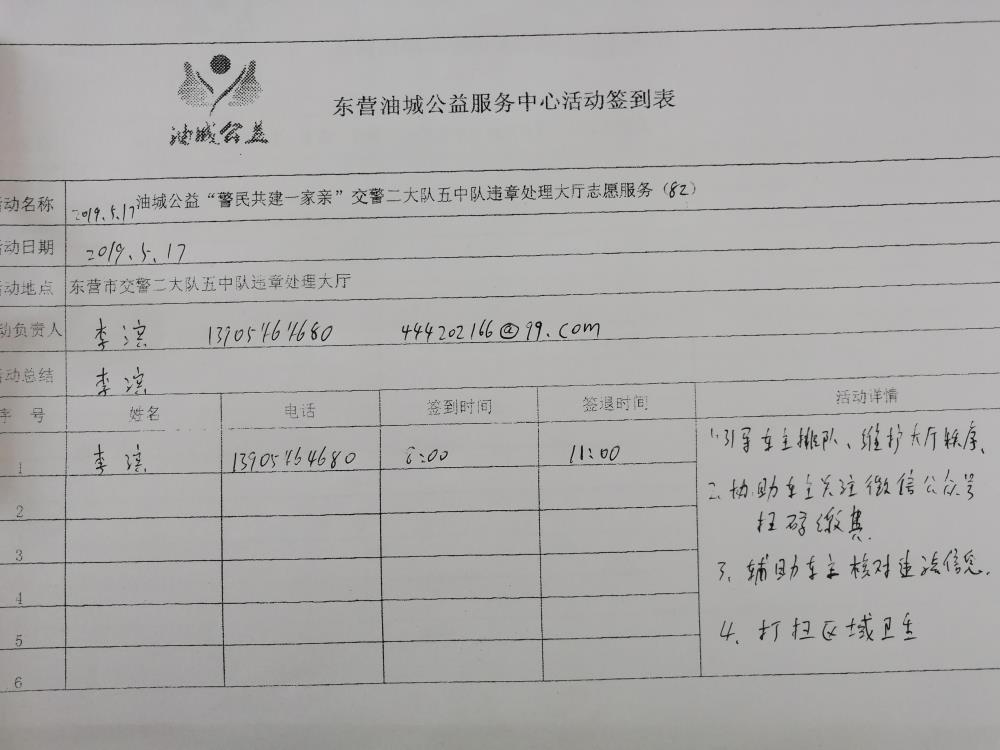 油城公益
东营油城公益服务中心活动签到表
活动名称 2019.5.17油城公益“警民共建一家亲”交警二大队五中队违章处理大厅志愿服务（82）
活动日期 2019.5.17
活动地点 东营市交警二大队五中队违章处理大厅
动负责人 李滨 13905464680 444202166@99.com
活动总结 李滨
序 号 姓名 电话 签到时间 签退时间 活动详情
1 李滨 13905464680 8:00 11:00
1.引导车主排队、维护大厅秩序、
2.协助车主关注微信公众号
扫码缴费
3、辅助车主核对违法信息.
4、打扫区域卫生
2
3
4
5
6